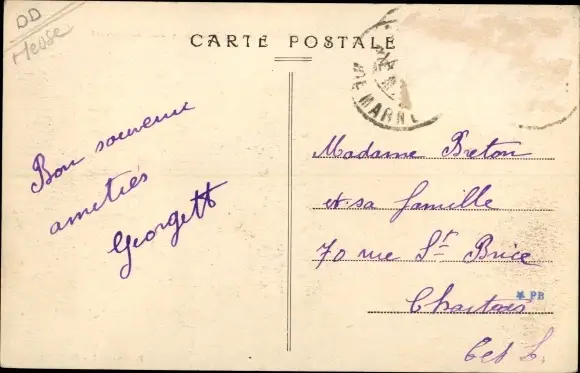 DD
Meuse
CARTE POSTALE
DE MARNE
Bon souvenir
amitiés
Georgett
Madame Breton
et sa famille
70 rue St Brice
Chartres
PB
Et L.